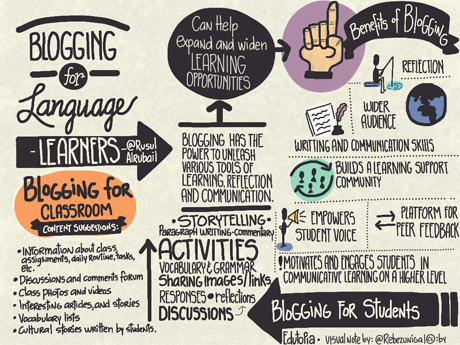 BLOGGING
for
Language
- LEARNERS -
@Rusul
AlrubaiL
Blogging for
CLASSROOM
CONTENT SUGGESTIONS:
• INFORMATION about class,
assignments, daily routine, tasks,
etc.
• Discussions and comments forum
• Class photos and videos
• Interesting articles, and stories
• Vocabulary lists
• Cultural stories written by students.
Can Help
expand and widen
LEARNING
OPPORTUNITIES
BLOGGING HAS THE
POWER TO UNLEASH
VARIOUS TOOLS OF
LEARNING, REFLECTION
AND COMMUNICATION.
• STORYTELLING •
PARAGRAPH WRITING - commentary
ACTIVITIES
VOCABULARY & GRAMMAR
SHARING IMAGES/links
RESPONSES • reflections
DISCUSSIONS
Benefits of Blogging
REFLECTION
WIDER
AUDIENCE
WRITING AND COMMUNICATION SKILLS
BUILDS A LEARNING SUPPORT
COMMUNITY
EMPOWERS
STUDENT VOICE
PLATFORM FOR
PEER FEEDBACK
• MOTIVATES AND ENGAGES STUDENTS IN
COMMUNICATIVE LEARNING ON A HIGHER LEVEL
Blogging For Students
Edutopia - VISUAL NOTE by: @Rebezuniga